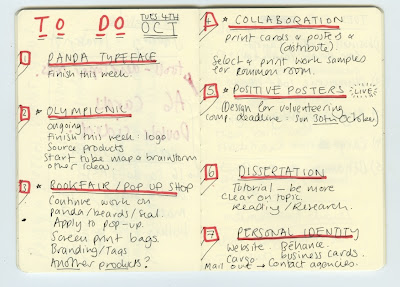 TO DO
TUES 4TH
OCT
1 * PANDA TYPEFACE
Finish this week.
2 * OLYMPICNIC
ongoing
Finish this week: logo
Source products
Start tube map & brainstorm
other ideas.
3 * BOOKFAIR/POP UP SHOP
Continue work on
panda/beards/seal.
Apply to pop-up.
Screen print bags.
Branding/Tags
Another products?
4 * COLLABORATION
print cards & posters &
(distribute).
Select & print work samples
for common room.
5 * POSITIVE POSTERS (LIVE)
(Design for volunteering
comp. deadline: Sun 30th October)
6 DISSERTATION
Tutorial - be more
clear on topic.
Reading/Research.
7 PERSONAL IDENTITY
Website. Behance.
Cargo business cards.
Mail out → Contact agencies.